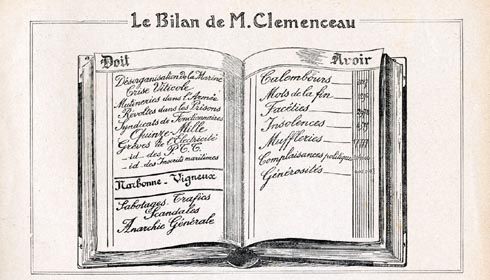 Le Bilan de M. Clemenceau
Doit
Désorganisation de la Marine
Crise Viticole
Mutineries dans l'Armée
Révoltes dans les Prisons
Syndicats de Fonctionnaires
Quinze Mille
Grèves de l'Électricité
_id_ des P.T.T.
_id_ des Inscrits maritimes
Narbonne - Vigneux
Sabotages. Trafics
Scandales
Anarchie Générale
Avoir
Calembours
Mots de la fin
Facéties
Insolences
Muffleries
Complaisances politiques
Générosités